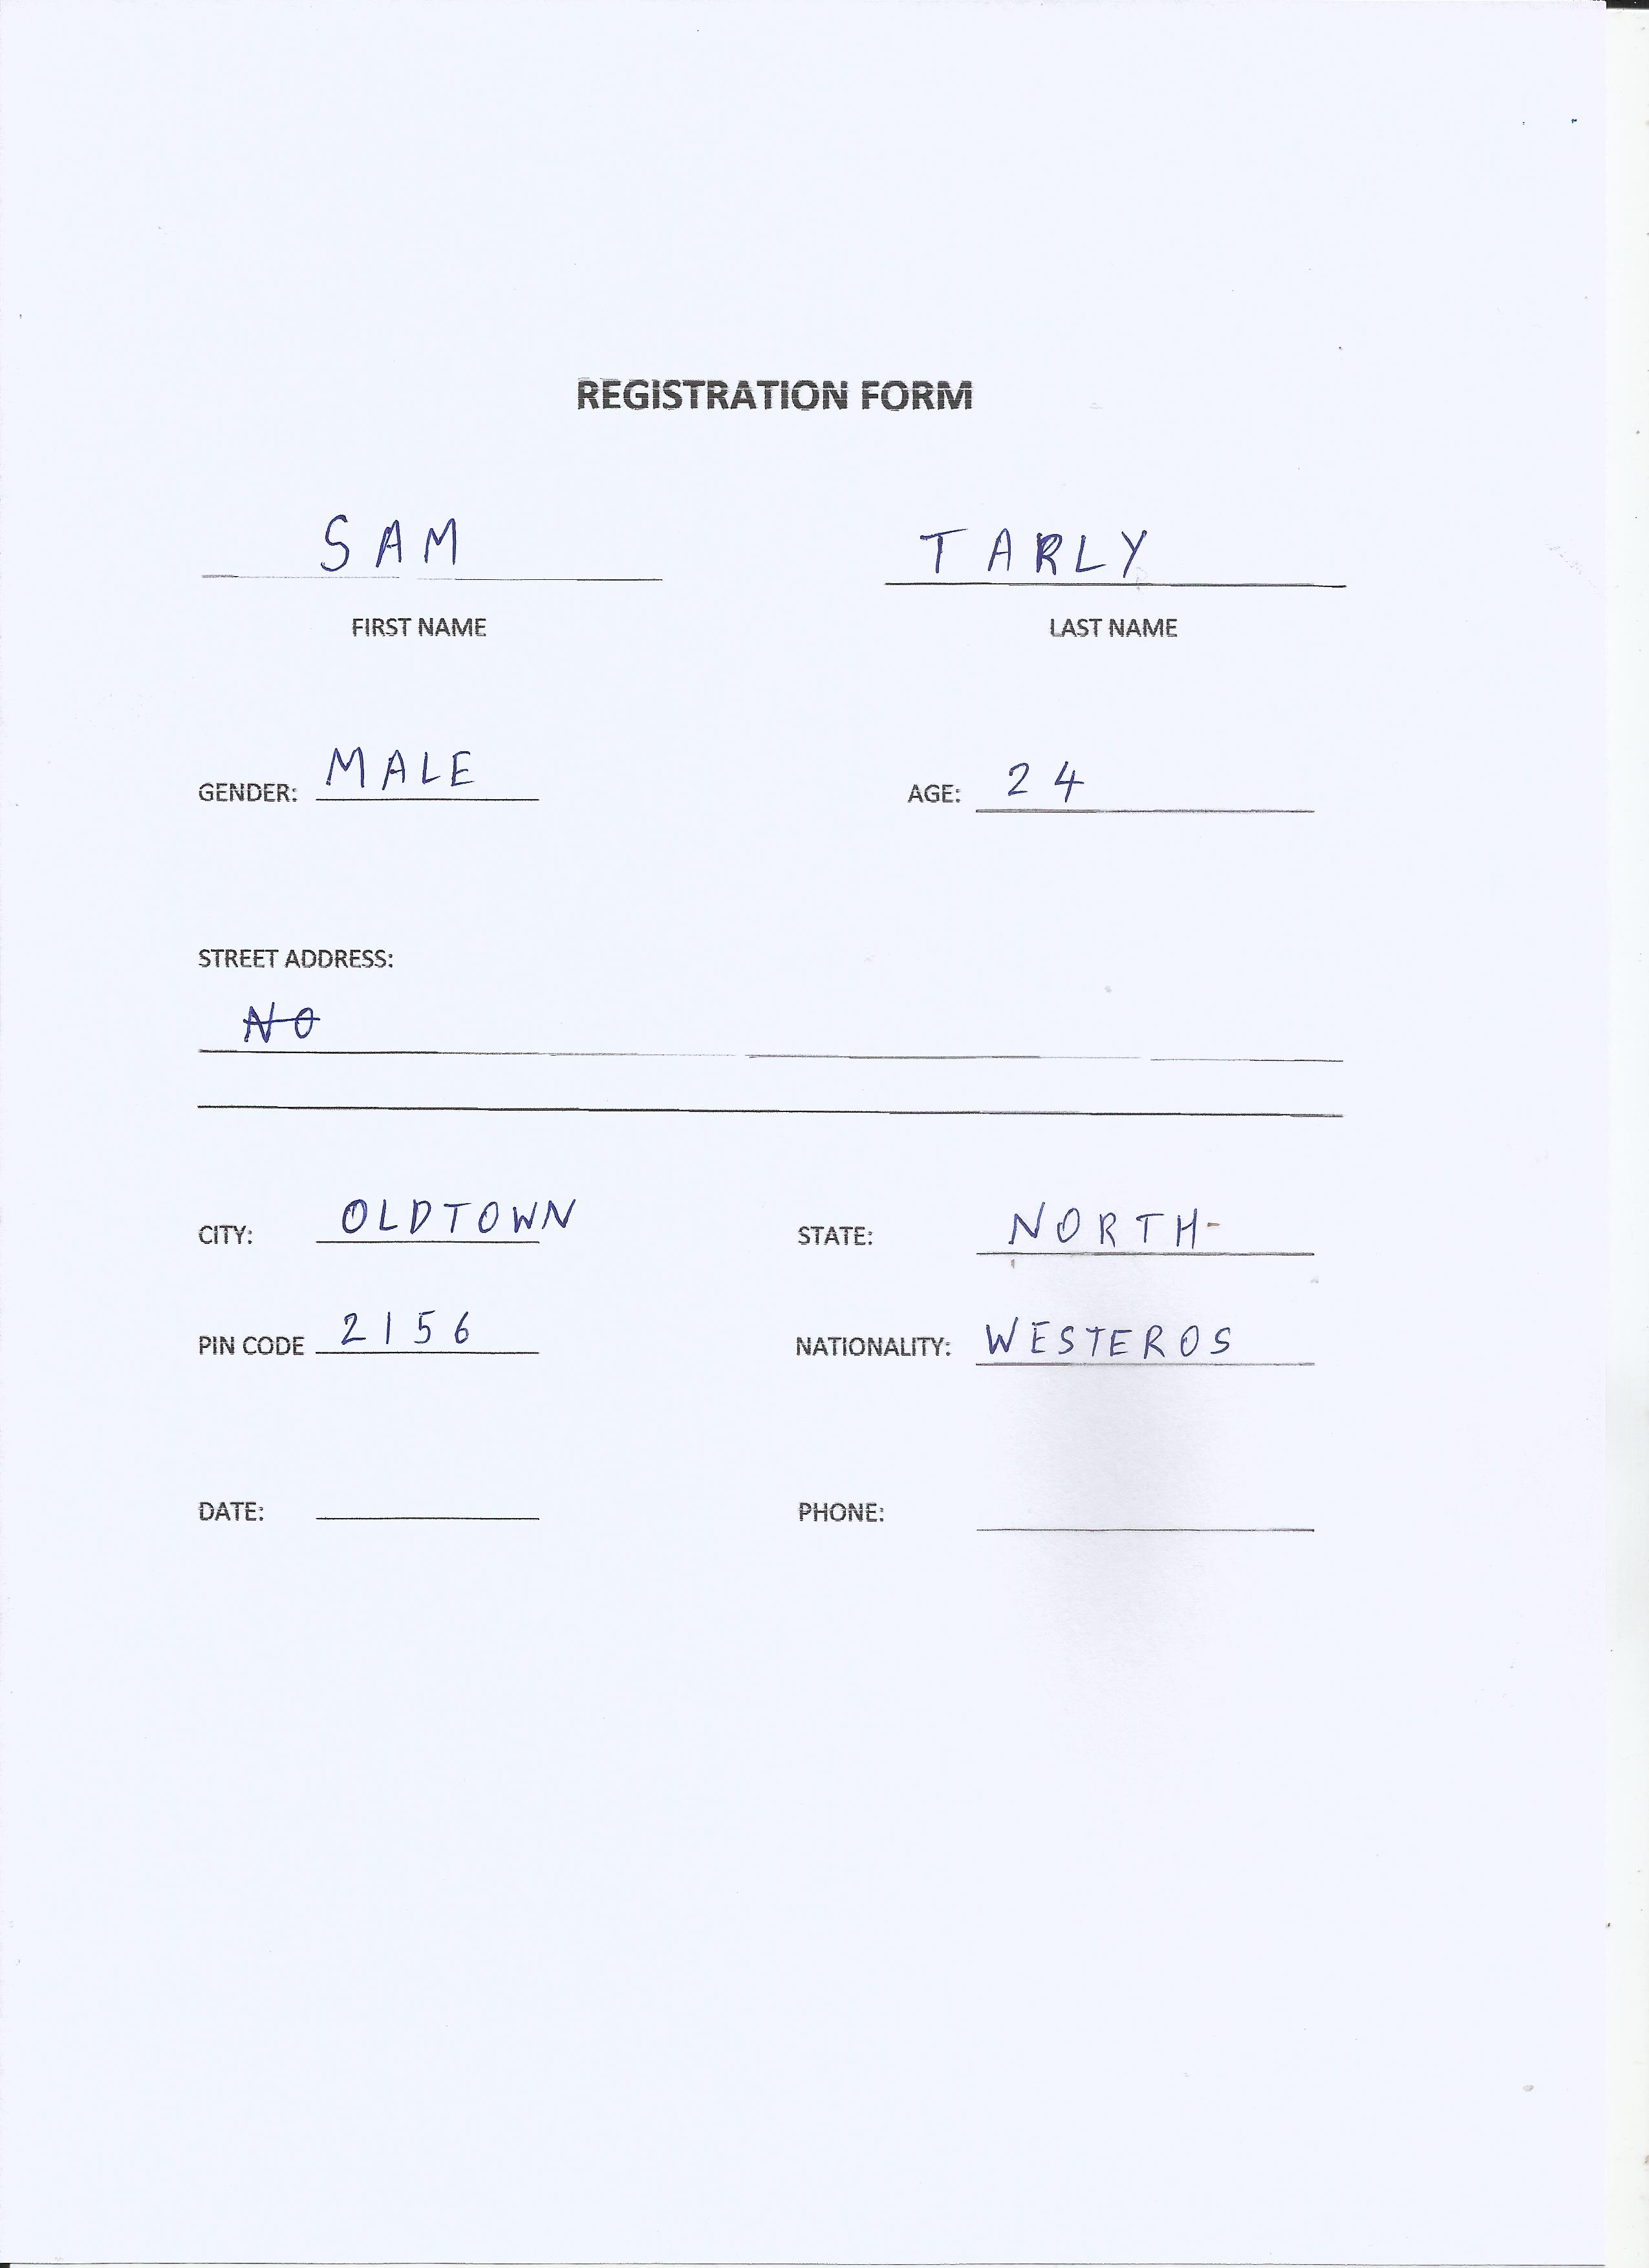 REGISTRATION FORM
SAM TARLY
FIRST NAME LAST NAME
GENDER: MALE AGE: 24
STREET ADDRESS:
NO
CITY: OLDTOWN STATE: NORTH-
PIN CODE 2156 NATIONALITY: WESTEROS
DATE: PHONE: